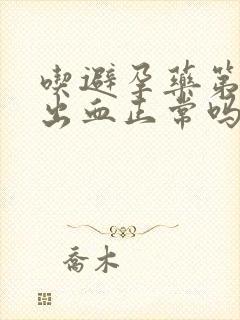 喫避孕藥第
出血正常嗎
喬木